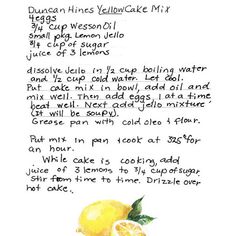 Duncan Hines Yellow Cake Mix
4 eggs
3/4 cup Wesson Oil
Small pkg. Lemon Jello
3/4 cup of sugar
juice of 3 lemons
dissolve Jello in 1/2 cup boiling water
and 1/2 cup cold water. Let cool.
Put cake mix in bowl, add oil and
mix well. Then add eggs, 1 at a time
beat well. Next add jello mixture
(It will be soupy).
Grease pan with cold oleo & flour.
Put mix in pan & cook at 325° for
an hour.
While cake is cooking, add
juice of 3 lemons to 3/4 cup of sugar.
Stir from time to time. Drizzle over
hot cake.